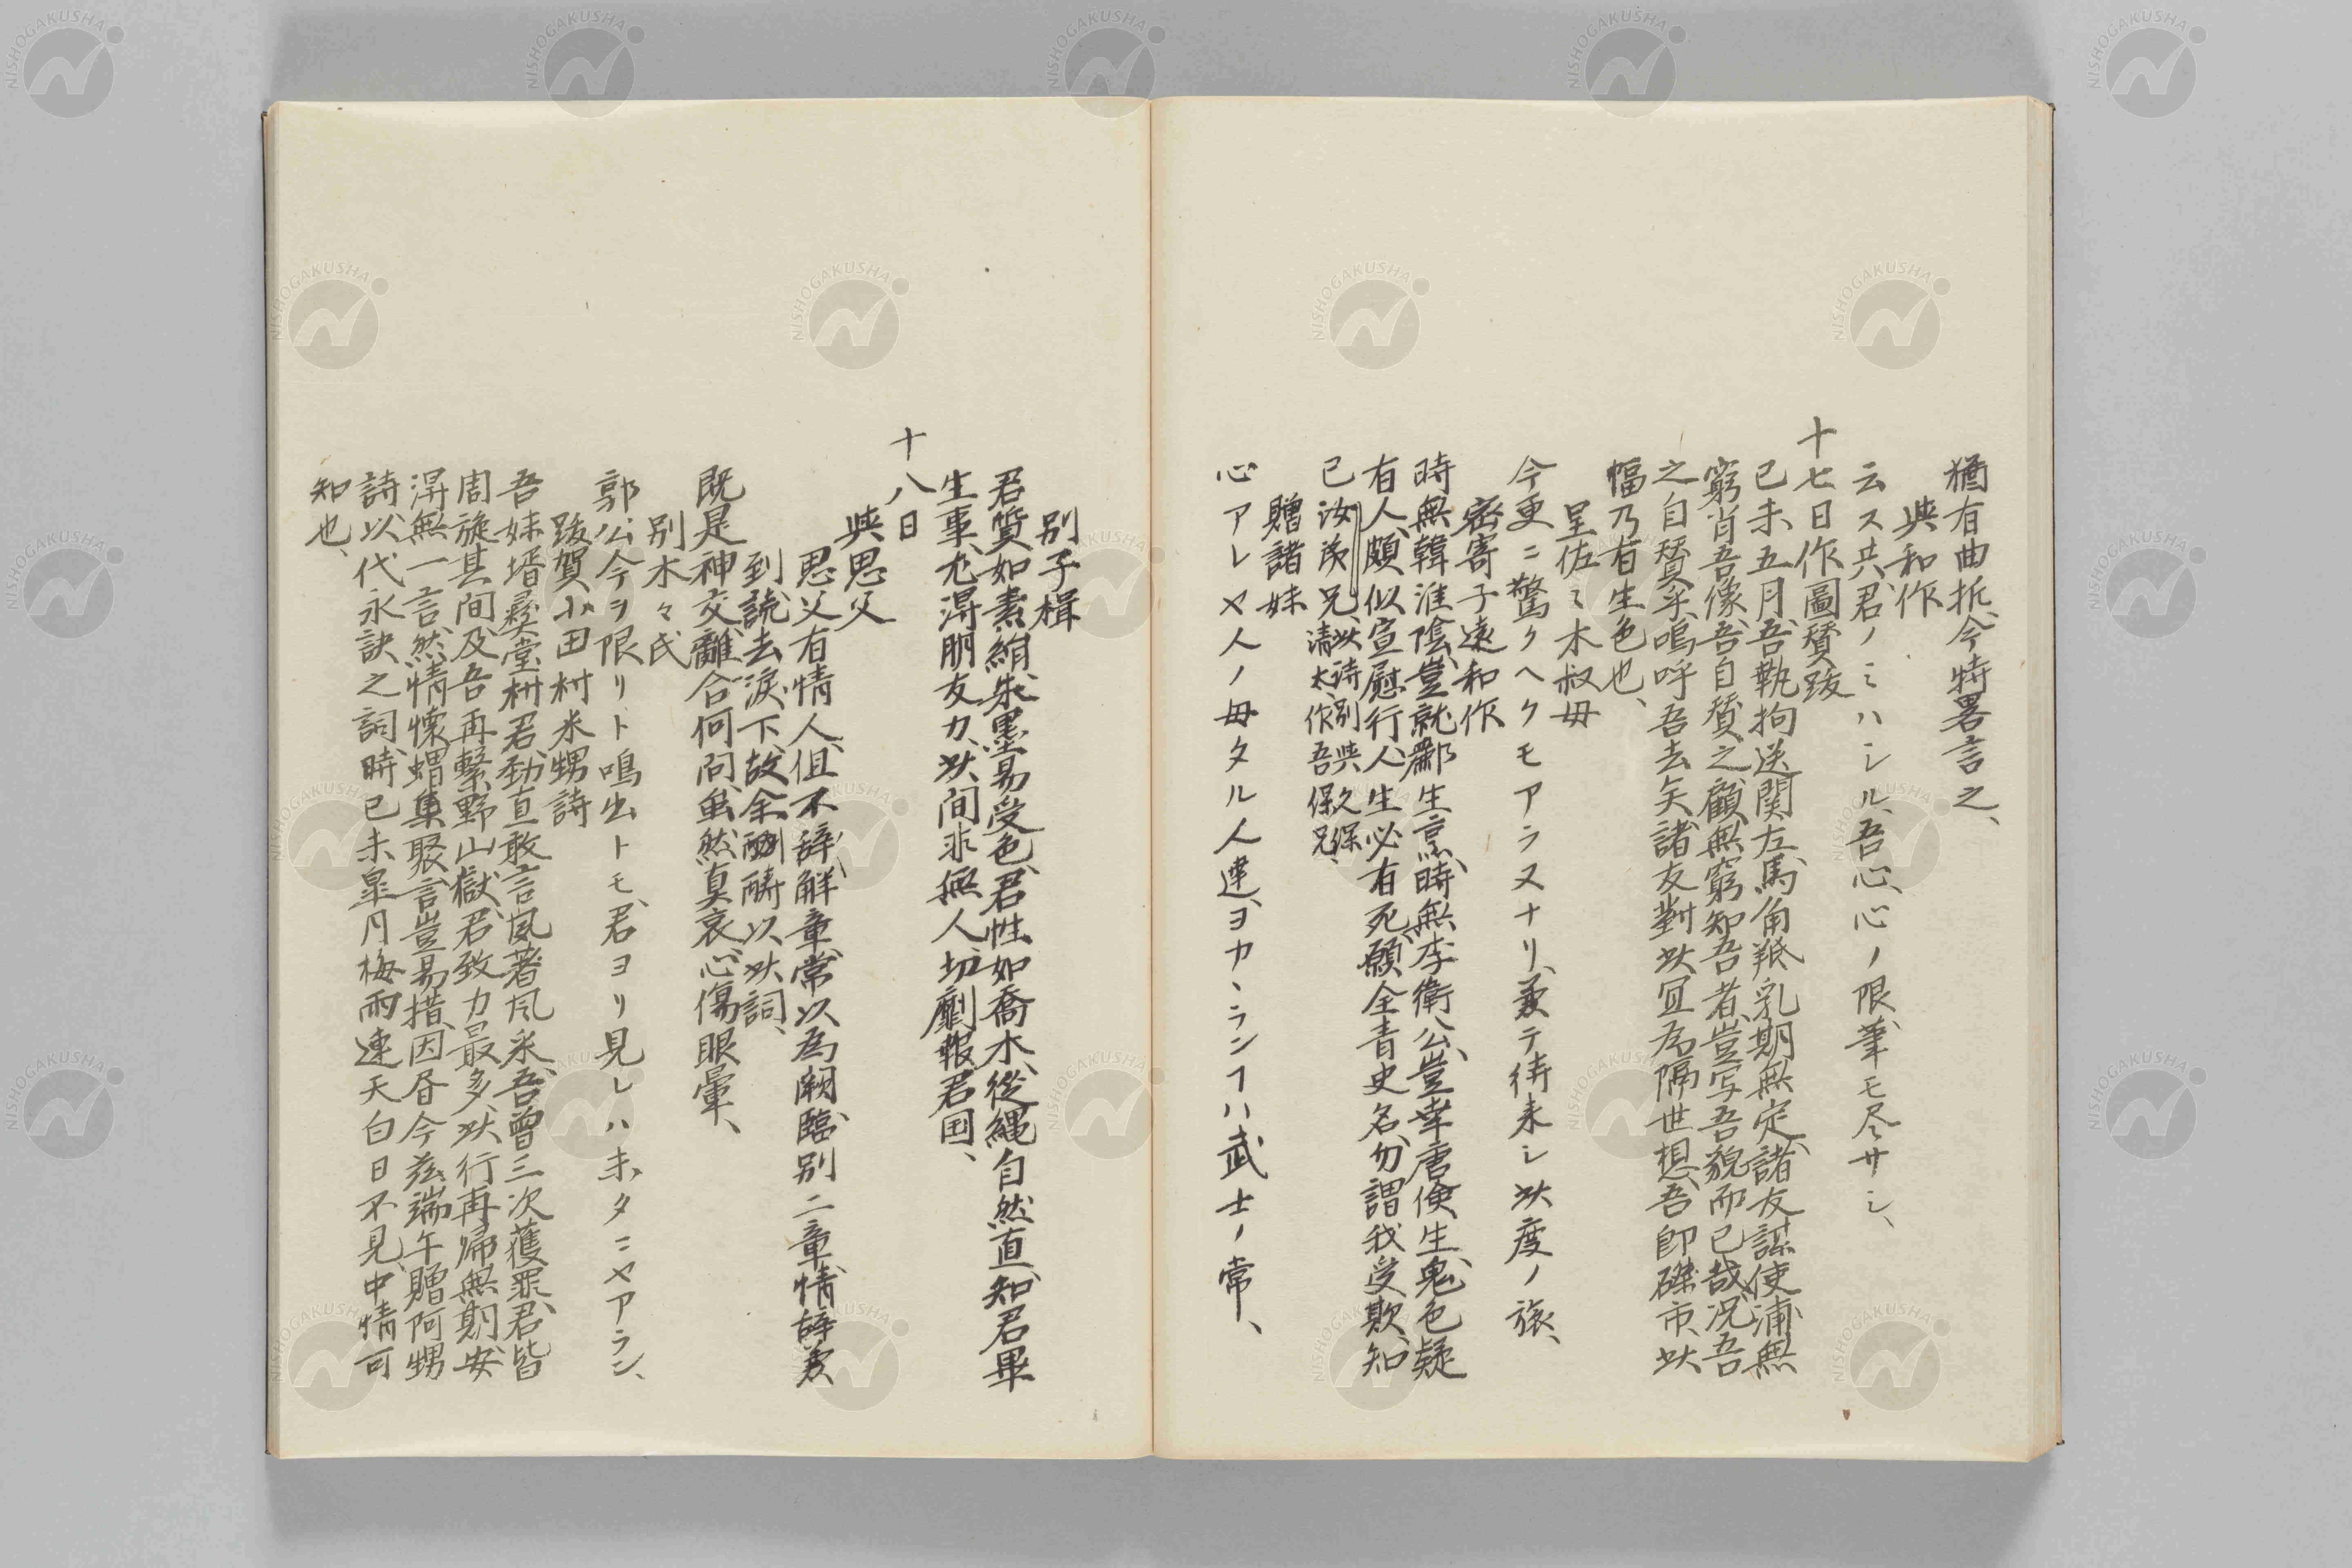 猶有曲折、今特畧言之、
與和作
云ス共、君ノミハシル、吾心、心ノ限筆モ尽サシ、
十七日作圖賛跋
已未五月、吾執拘送関左、馬角羝乳期無定、諸友謀使浦無
窮肖吾像、吾自賛之、顧無窮知吾者、豈写吾貌而已哉、况吾
之自賛乎、嗚呼吾去矣、諸友對此冝為隔世想、吾即磔市、此
幅乃有生色也、
呈佐々木叔母
今更ニ驚クヘクモアラヌナリ、兼テ待来シ此度ノ旅、
密寄子遠和作
時無韓淮陰、豈就酈生烹、時無李衛公、豈幸唐倹生、鬼色疑
有人、頗似宣慰行、人生必有死、願全青史名、勿謂我受欺、知
己汝茂兄、此詩別與久保
清太、作吾保兄、
贈諸妹
心アレヤ人ノ母タル人達ヨカヽラン丁ハ武士ノ常、
別子楫
君質如素絹、朱墨易受色、君性如喬木、從縄自然直、知君畢
生事、尤淂朋友力、此間非無人、切劘報君国、
十八日
與思父
思父有情人、但不辞解章、常以為闕、臨別二章、情辞兼
到、読去涙下、故余酬酹以此詞、
既是神交、離合何問、虽然真哀、心傷眼暈、
別木々氏
郭公今ヲ限リト鳴出トモ、君ヨリ見レハ未タニヤアラン、
跋賀小田村米甥詩
吾妹壻彛堂村君、勁直敢言、夙著凬采、吾曽三次獲罪、君皆
周旋其間、及吾再繋野山獄、君致力最多、此行再帰無期、安
淂無一言、然情懐蝟集、聚言豈易措、因昏今茲端午贈阿甥
詩、以代永訣之詞、時已未皐月、梅雨連天、白日不見、中情可
知也、
NISHOGAKUSHA